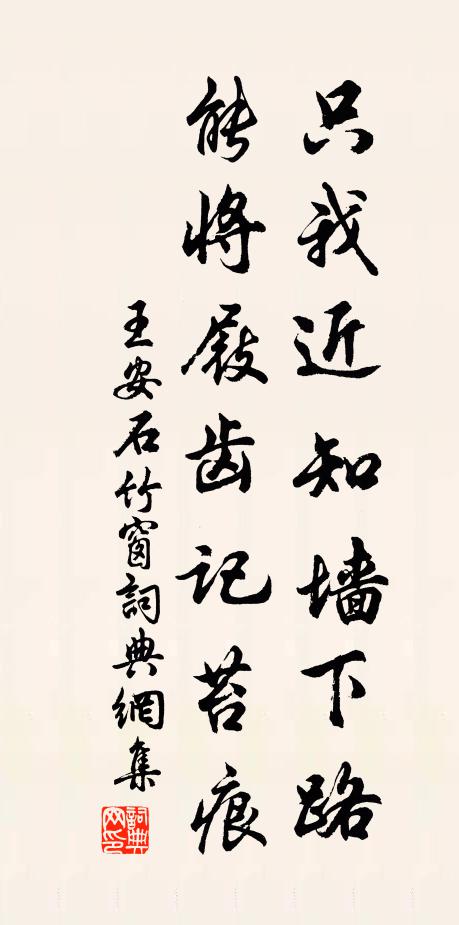 只我近知墙下路
能将屐齿记苔痕
王安石竹窗詞典網集
詞典网印